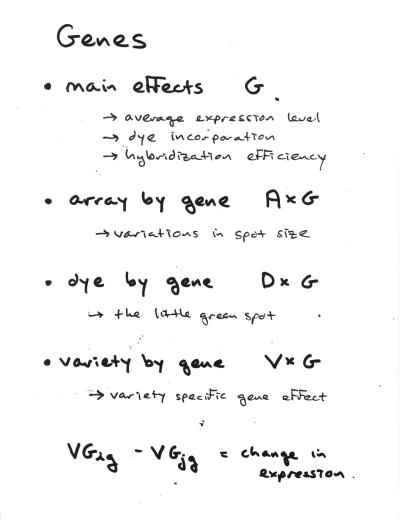 Genes
• main effects G
→ average expression level
→ dye incorporation
→ hybridization efficiency
• array by gene A×G
→ variations in spot size
• dye by gene D× G
→ the little green spot
• variety by gene V× G
→ variety specific gene effect
VGig - VGjg = change in
expression.